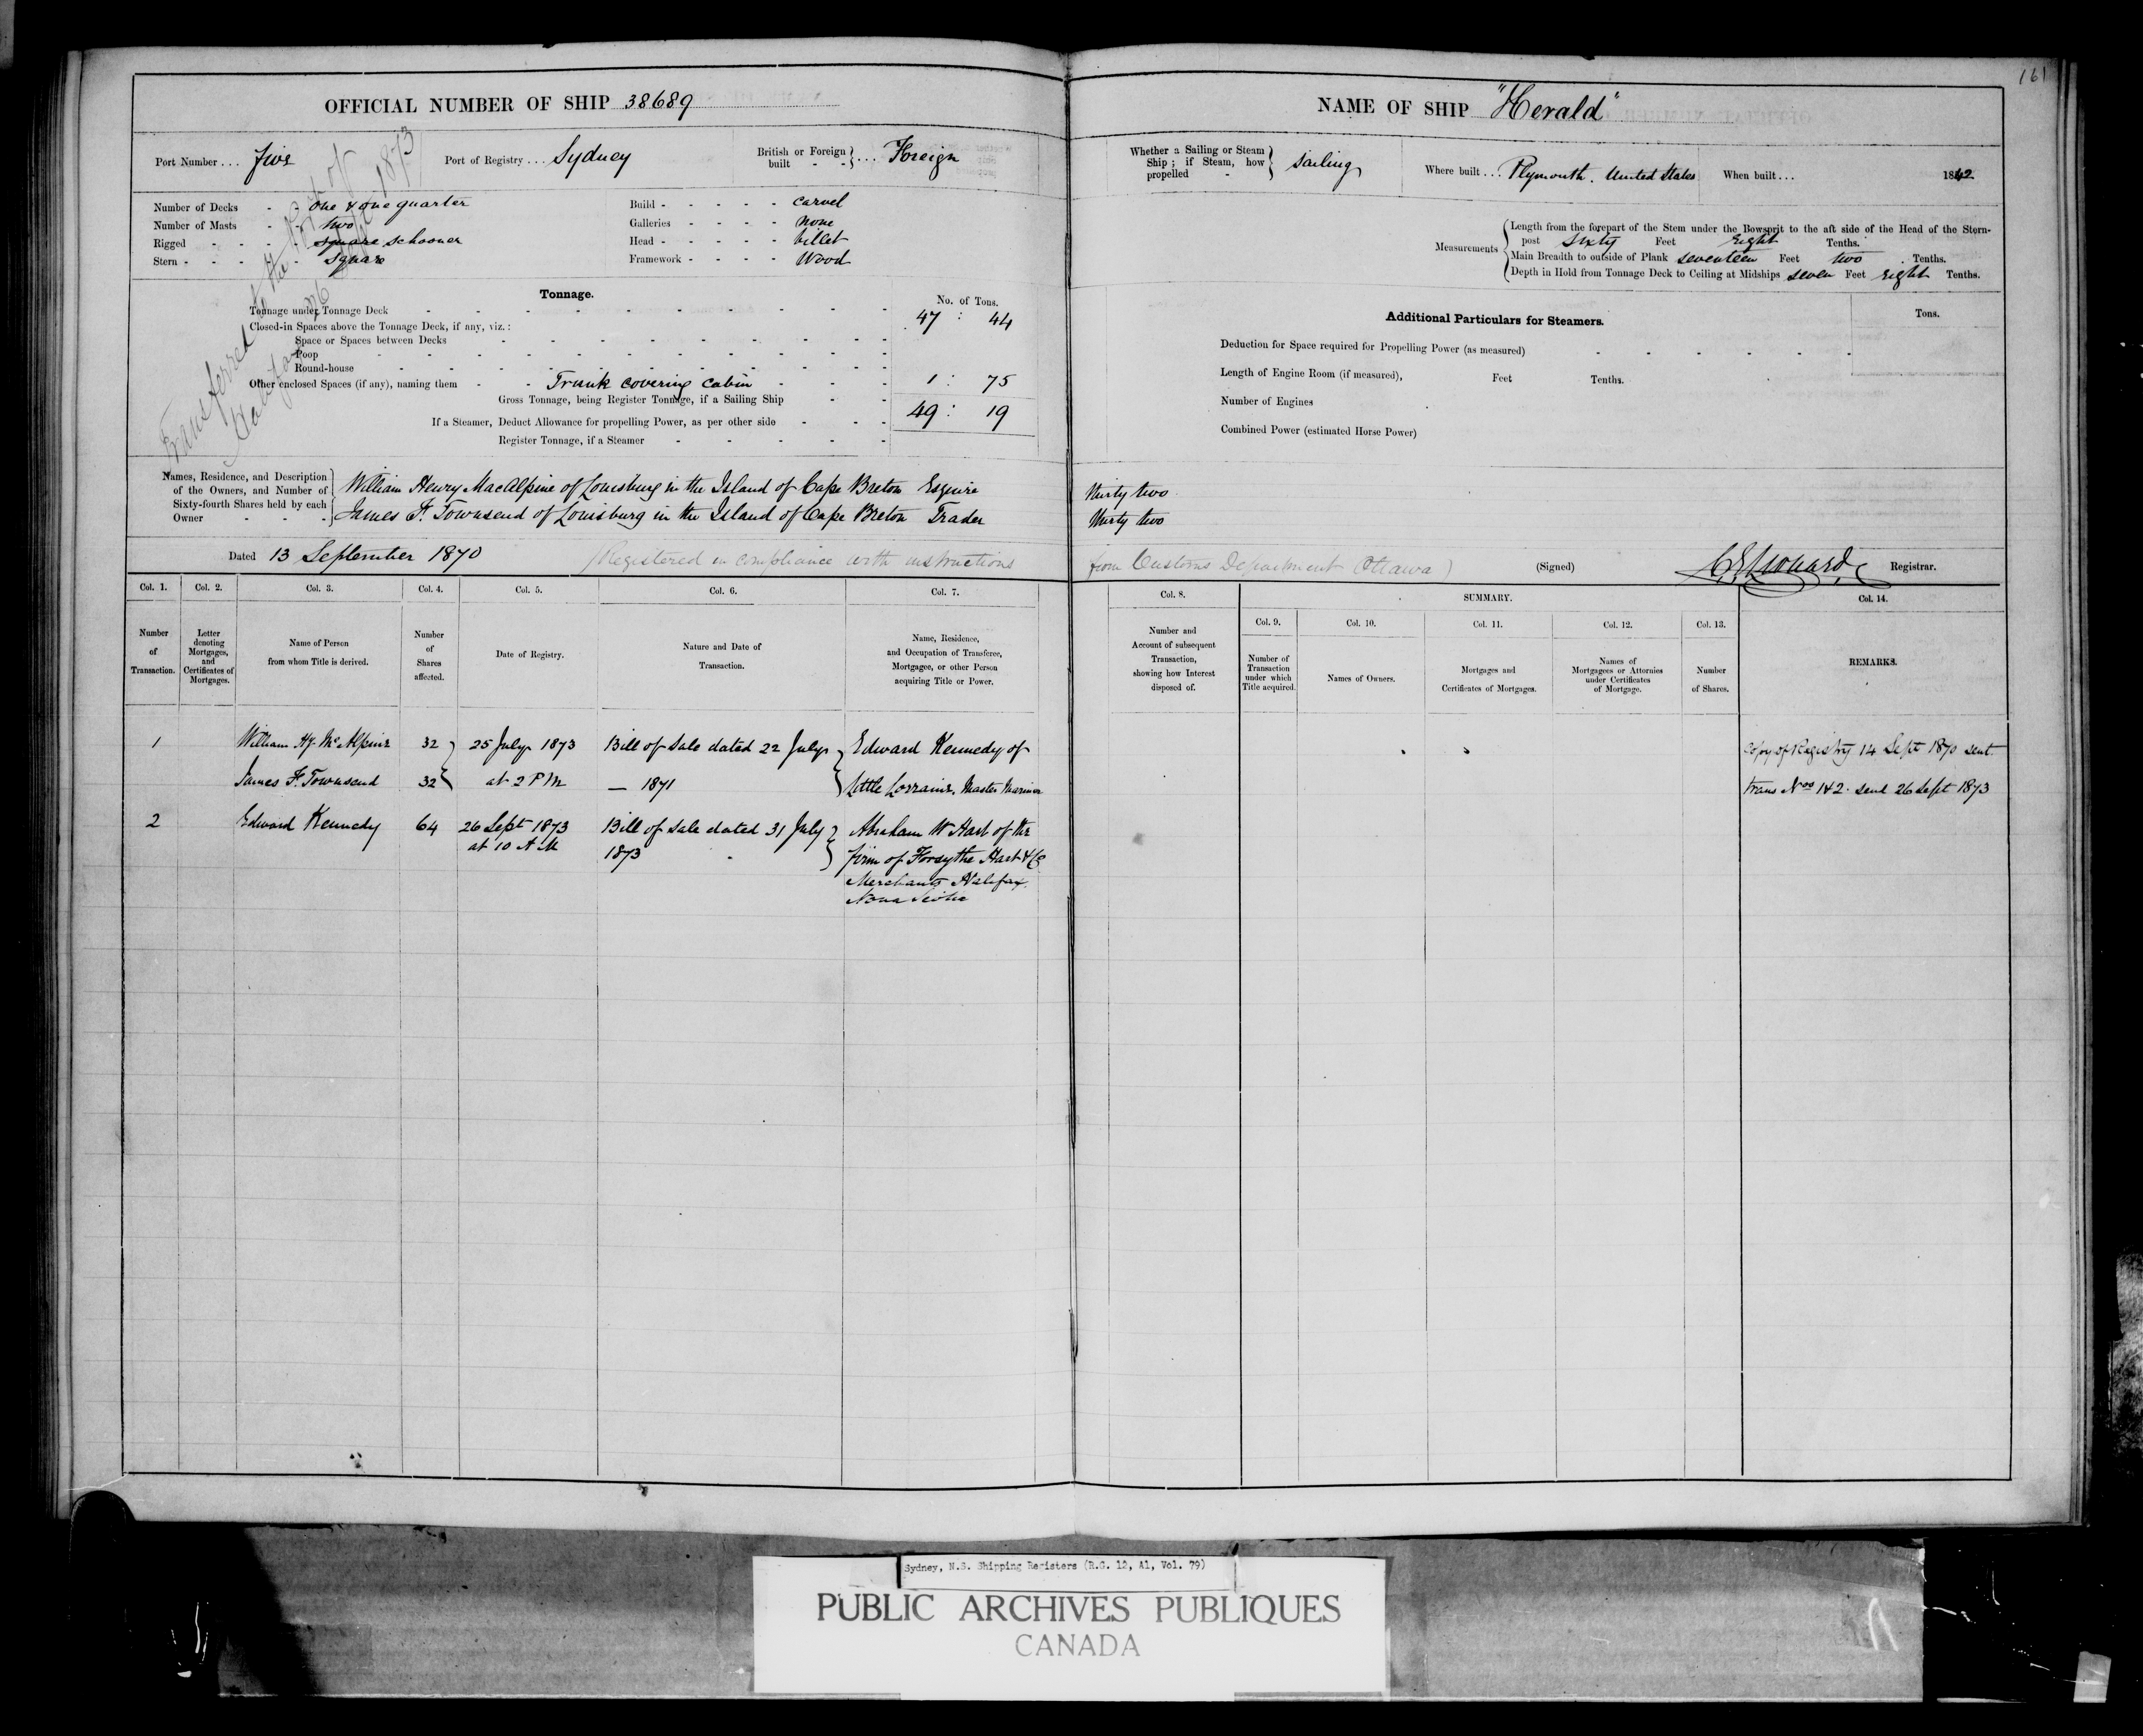 161
OFFICIAL NUMBER OF SHIP 38689
NAME OF SHIP "Herald"
Port Number . . . five
Port of Registry . . . Sydney
British or Foreign built - - } . . . Foreign
Whether a Sailing or Steam Ship ; if Steam, how propelled - } Sailing
Where built . . . Plymouth. United States
When built . . . 1842
Number of Decks - - one & one quarter
Number of Masts - - two
Rigged - - - - square schooner
Stern - - - - square
Build - - - - - carvel
Galleries - - - - none
Head - - - - - billet
Framework - - - - Wood
Measurements
Length from the forepart of the Stem under the Bowsprit to the aft side of the Head of the Stern-
post sixty Feet Eight Tenths.
Main Breadth to outside of Plank seventeen Feet two Tenths.
Depth in Hold from Tonnage Deck to Ceiling at Midships seven Feet Eight Tenths.
Transferred to the Port of
Halifax 26 Sept 1873
Tonnage.
No. of Tons.
Tonnage under Tonnage Deck 47 : 44
Closed-in Spaces above the Tonnage Deck, if any, viz. :
Space or Spaces between Decks
Poop
Round-house
Other enclosed Spaces (if any), naming them - - Trunk covering cabin 1 : 75
Gross Tonnage, being Register Tonnage, if a Sailing Ship 49 : 19
If a Steamer, Deduct Allowance for propelling Power, as per other side
Register Tonnage, if a Steamer
Additional Particulars for Steamers.
Tons.
Deduction for Space required for Propelling Power (as measured)
Length of Engine Room (if measured), Feet Tenths.
Number of Engines
Combined Power (estimated Horse Power)
Names, Residence, and Description
of the Owners, and Number of
Sixty-fourth Shares held by each
Owner
William Henry MacAlpine of Louisburg in the Island of Cape Breton Esquire thirty two
James F. Townsend of Louisburg in the Island of Cape Breton Trader thirty two
Dated 13 September 1870 (Registered in compliance with instructions from Customs Department Ottawa) (Signed) C E Leonard Registrar.
Col. 1. Col. 2. Col. 3. Col. 4. Col. 5. Col. 6. Col. 7. Col. 8. SUMMARY. Col. 14.
Col. 9. Col. 10. Col. 11. Col. 12. Col. 13.
Number of Transaction.
Letter denoting Mortgages, and Certificates of Mortgages.
Name of Person from whom Title is derived.
Number of Shares affected.
Date of Registry.
Nature and Date of Transaction.
Name, Residence, and Occupation of Transferee, Mortgagee, or other Person acquiring Title or Power.
Number and Account of subsequent Transaction, showing how Interest disposed of.
Number of Transaction under which Title acquired.
Names of Owners.
Mortgages and Certificates of Mortgages.
Names of Mortgagees or Attornies under Certificates of Mortgage.
Number of Shares.
REMARKS.
1 William Hy. McAlpine 32 25 July 1873 Bill of Sale dated 22 July Edward Kennedy of Copy of Registry 14 Sept 1870 sent.
James F. Townsend 32 at 2 PM — 1871 Little Lorraine. Master Mariner trans Nos 1 & 2 send 26 Sept 1873
2 Edward Kennedy 64 26 Sept 1873 Bill of Sale dated 31 July Abraham W Hart of the
at 10 AM 1873 firm of Forsythe Hart & Co
Merchants Halifax.
Nova Scotia
Sydney, N.S. Shipping Registers (R.G. 12, A1, Vol. 79)
PUBLIC ARCHIVES PUBLIQUES
CANADA